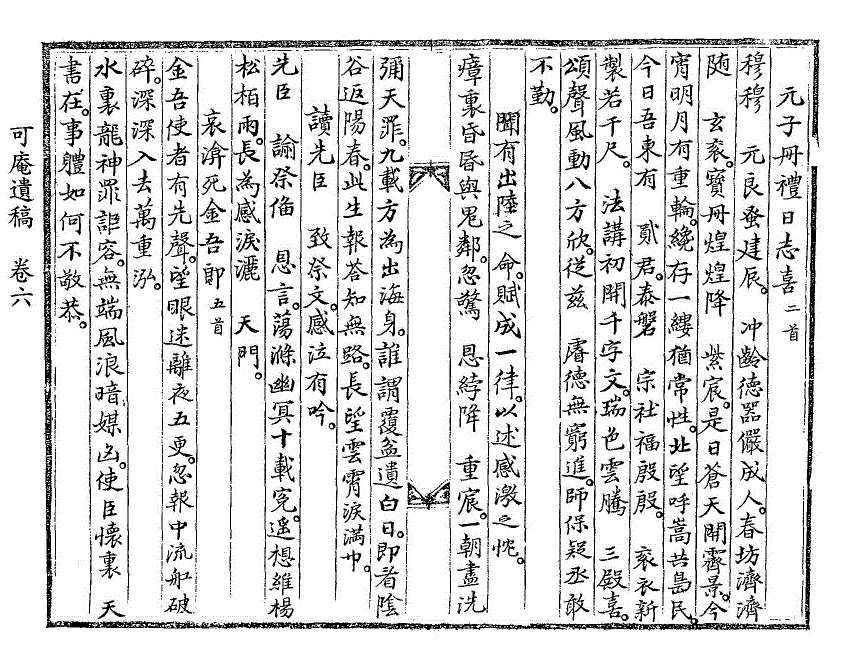 元子冊禮日志喜 二首
穆穆 元良蚤建辰。 冲齡德器儼成人。春坊濟濟
随 玄衮。寶冊煌煌降 紫宸。是日蒼天開霽景。今
宵明月有重輪。纔存一縷猶常性。北望呼嵩共島民。
今日吾東有 貳君。泰磐 宗社福殷殷。 衮衣新
製若干尺。 法講初開千字文。瑞色雲騰 三殿喜。
頌聲風動八方欣。從兹 睿德無窮進。師保疑丞敢
不勤。
聞有出陸之 命。賦成一律。以述感激之忱。
瘴裏昏昏與鬼鄰。忽驚 恩綍降 重宸。一朝盡洗
彌天罪。九載方為出海身。誰謂覆盆遺白日。即看陰
谷返陽春。此生報答知無路。長望雲霄淚滿巾。
讀先臣 致祭文。感泣有吟。
先臣 諭祭偹 恩言。蕩滌幽冥十載寃。遥想維楊
松栢雨。長為感淚灑 天門。
哀渰死金吾郎 五首
金吾使者有先聲。望眼迷離夜五更。忽報中流船破
碎。深深入去萬重泓。
水裏龍神罪詎容。無端風浪暗媒凶。使臣懷裏 天
書在。事軆如何不敬恭。
可庵遺稿 卷六